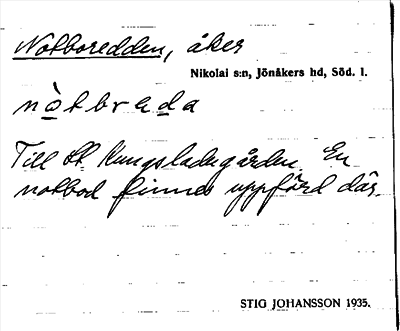 Notboredden, åker
Nikolai s:n, Jönåkers hd, Söd. l.
nòtbreda
Till St Kungsladugården. En
notbod finnes uppförd där.
STIG JOHANSSON 1935.